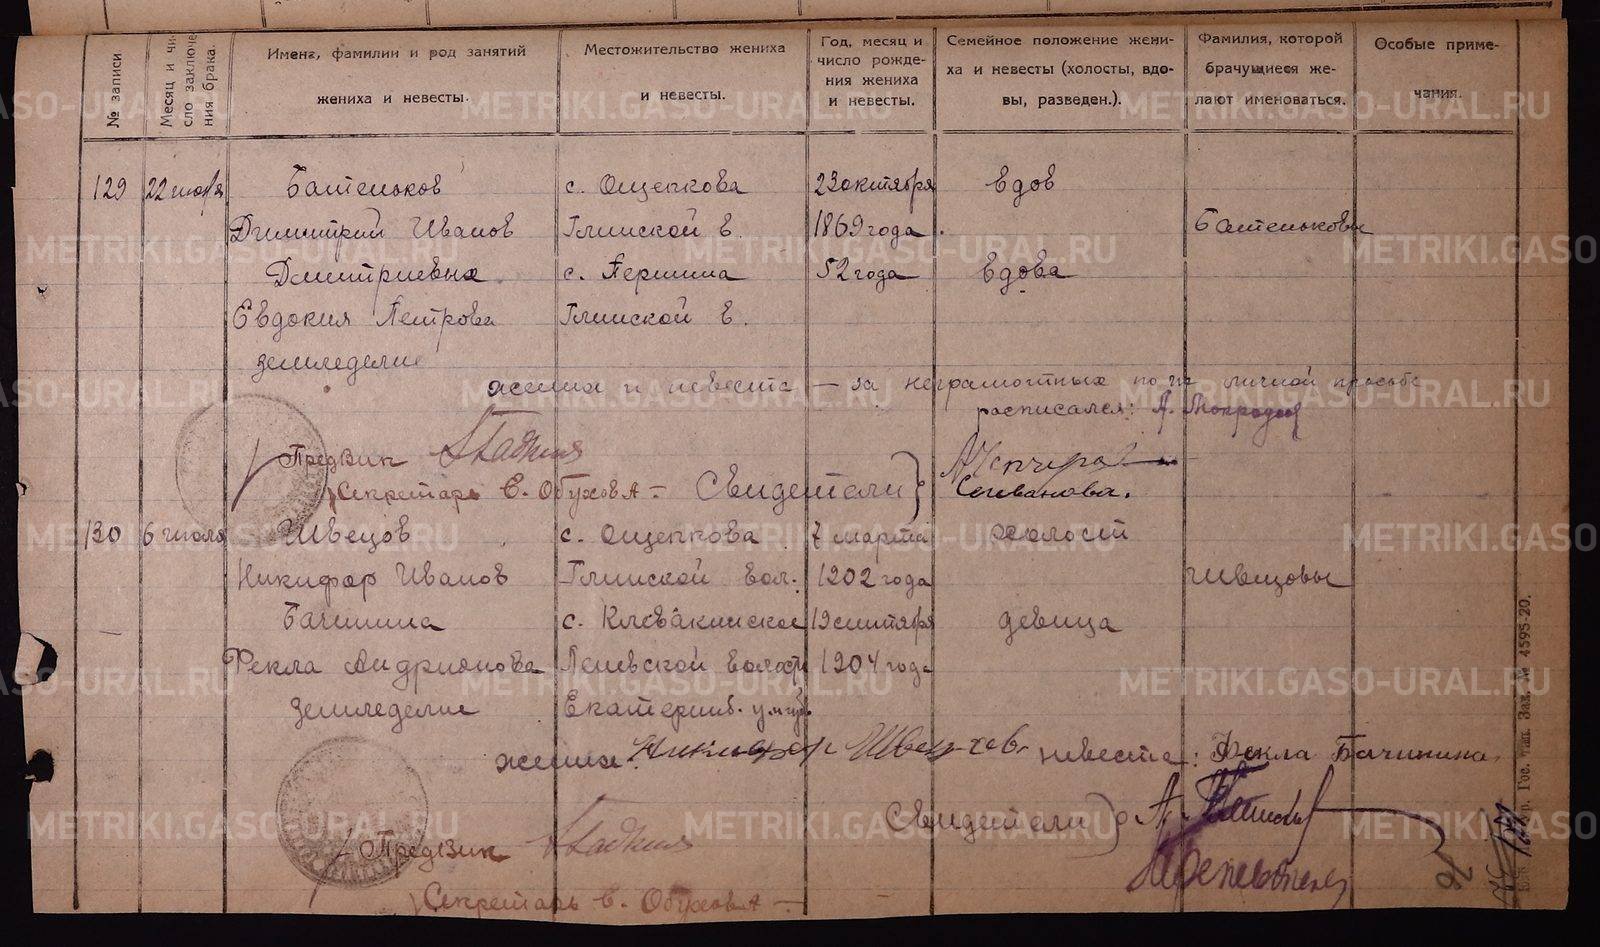 № записи
Месяц и чи-
сло заключе-
ния брака.
Имена, фамилии и род занятий
жениха и невесты.
Местожительство жениха
и невесты.
Год, месяц и
число рожде-
ния жениха
и невесты.
Семейное положение жени-
ха и невесты (холосты, вдо-
вы, разведен.).
Фамилия, которой
брачущиеся же-
лают именоваться.
Особые приме-
чания.
129 Батеньков с. Ощепкова 23 октября вдов
Димитрий Иванов Глинской в. 1869 года. Батеньковы
Дмитриевых с. Першина 52 года вдова
Евдокия Петрова Глинской в.
земледелие
жениха и невеста — за неграмотных по их личной просьбе
расписался: А.
ПредВик
Секретарь Е. Обухова — Свидетели
130 6 июля Швецов с. Ощепкова 7 марта холост
Никифор Иванов Глинской вол. 1902 года Швецовы
Бачинина с. Клевакинское 19 сентября девица
Фекла Андрионова Леневской волости 1904 года
земледелие Екатеринб. у. и губ.
жених: Никифор Швецов. невеста: Фекла Бачинина.
Свидетели А.
ПредВик
Секретарь Е. Обухова —
Гос. тип. Зак. № 4595-20.
METRIKI.GASO-URAL.RU